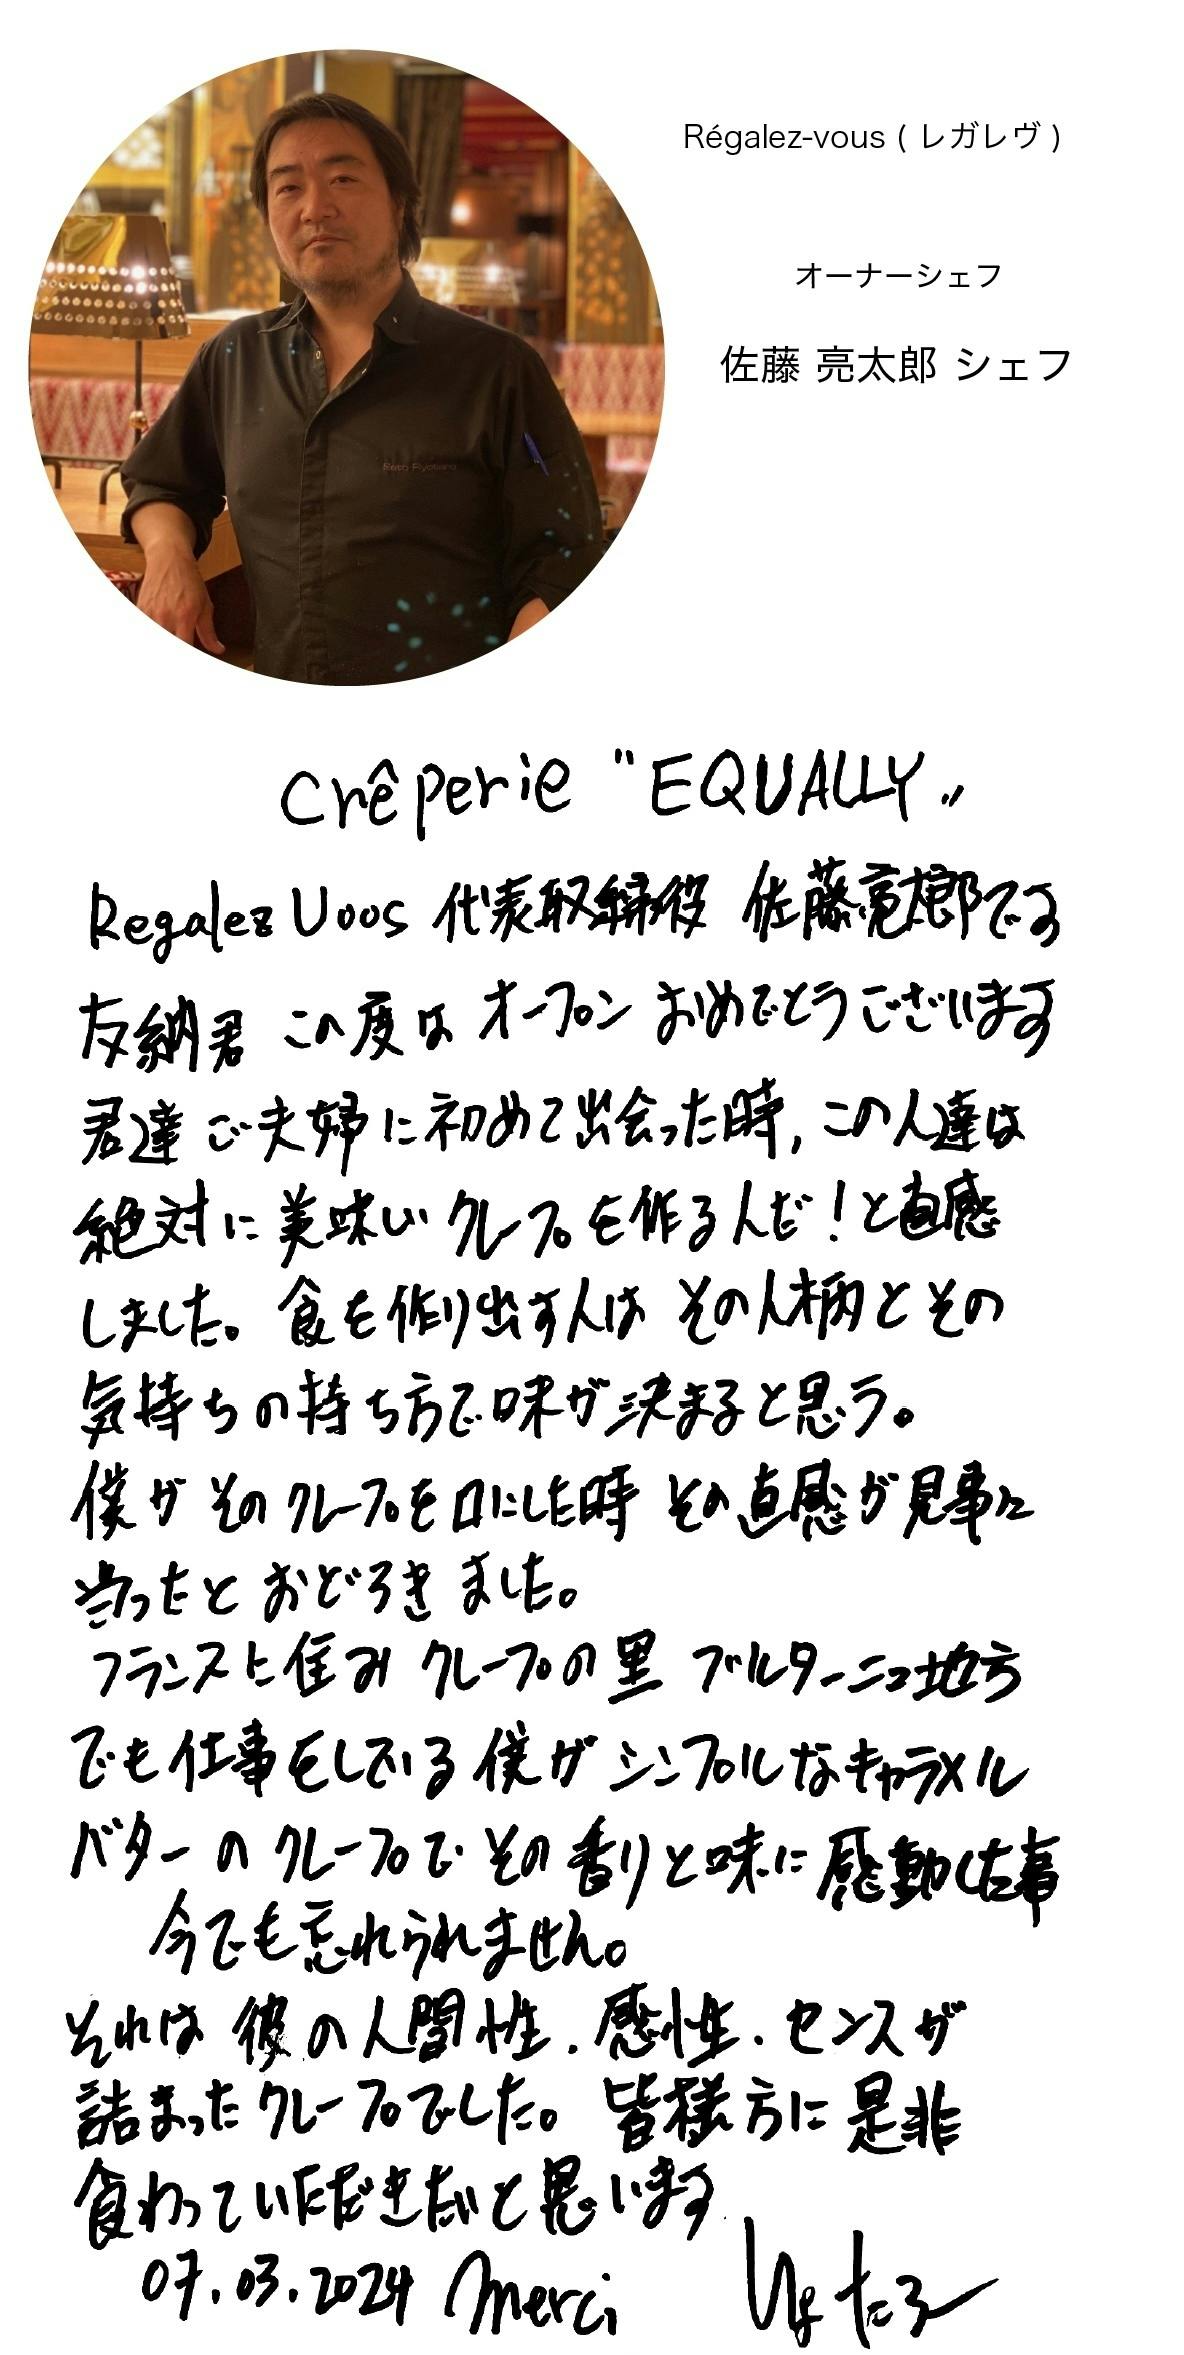 Régalez-vous ( レガレヴ )
オーナーシェフ
佐藤 亮太郎 シェフ
Sato Ryotaro
Crêperie "EQUALLY"
Regalez Uoos 代表取締役 佐藤亮太郎です
友納君 この度は オープン おめでとうございます
君達 ご夫婦に初めて出会った時, この人達は
絶対に美味しいクレープを作るんだ!と直感
しました。食を作り出す人は その人柄とその
気持ちの持ち方で味が決まると思う。
僕が そのクレープを口にした時 その直感が見事に
当ったと おどろき ました。
フランスに住み クレープの里 ブルターニュ地方
でも仕事をしている僕が シンプルなキャラメル
バターの クレープで その香りと味に感動した事
今でも忘れられません。
それは 彼の人間性.感性.センスが
詰まったクレープでした。皆様方に是非
食わっていただきたいと思います
07.03.2024 Merci